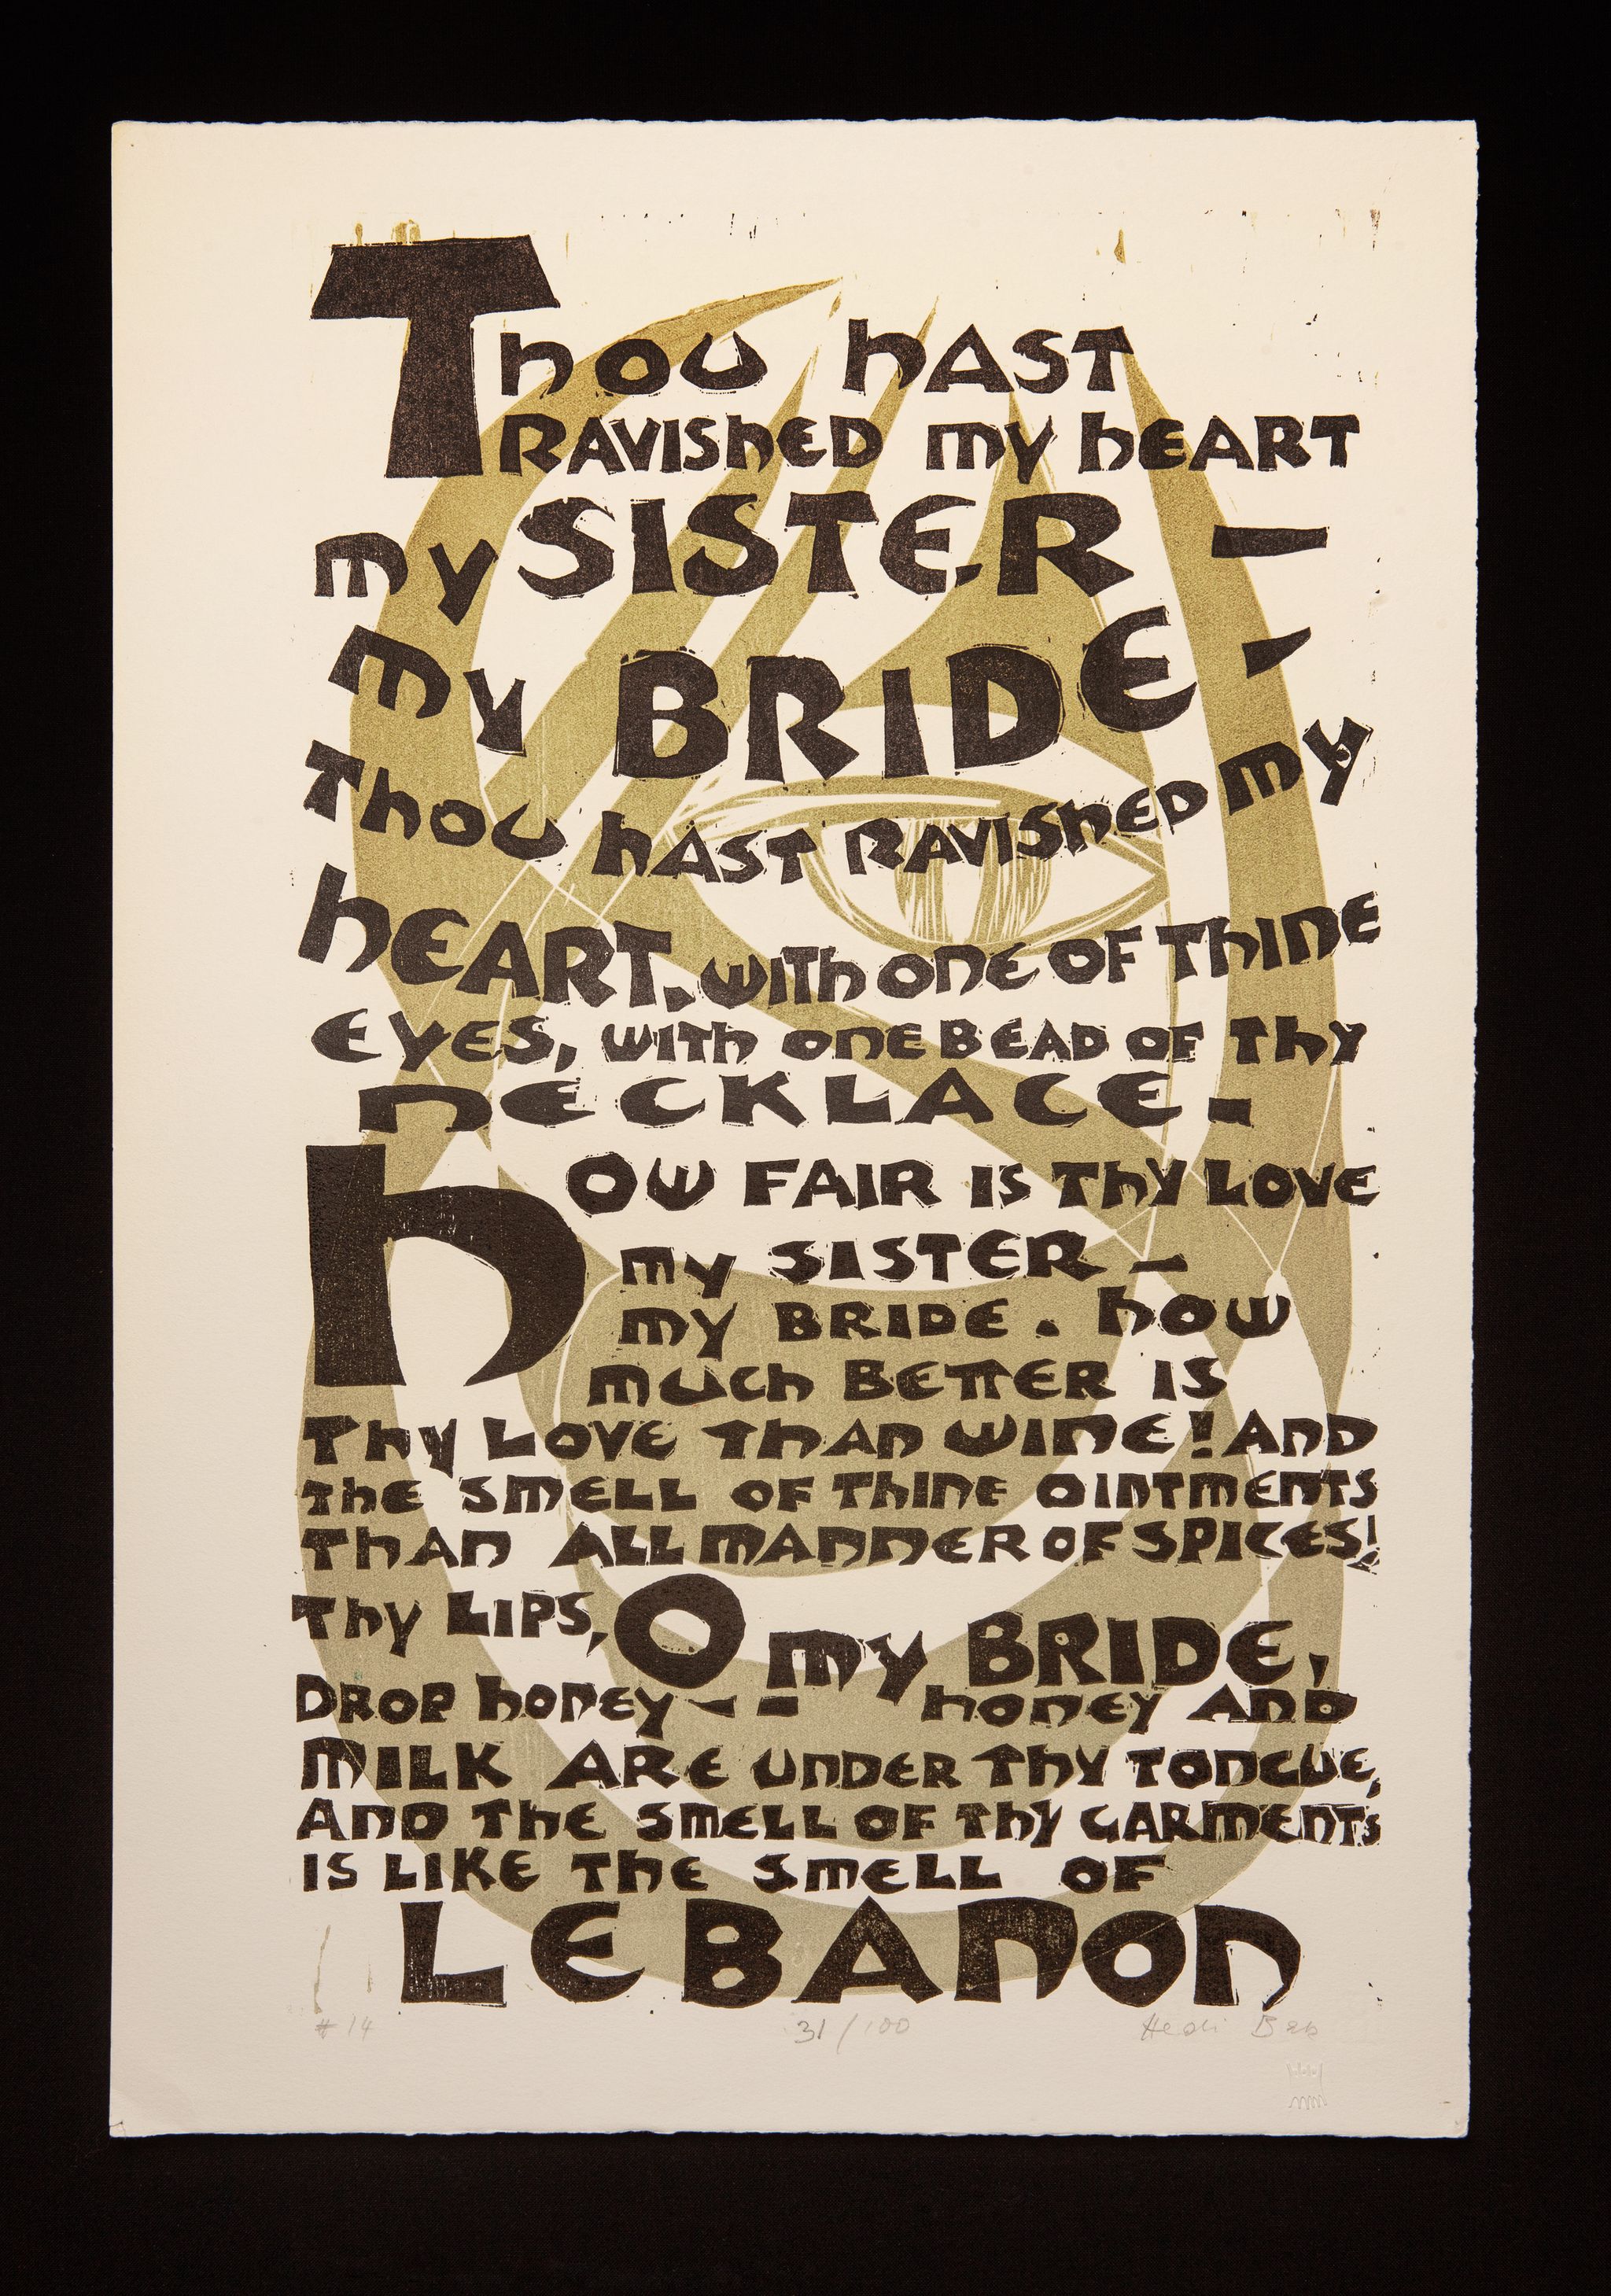 Thou hAST
RAVIShED my hEART
my SISTER –
my BRIDE –
Thou hAST RAVIShED my
hEART, with one of Thine
EyES, with one BEAD of Thy
NECKLACE –
how FAIR IS Thy LOVE
my SISTER –
my BRIDE. how
much BETTER IS
Thy LOVE ThAN WINE! AND
the SMELL OF ThINE OINTMENTS
ThAN ALL MANNER OF SPICES!
Thy LIPS, O my BRIDE,
DROP honey – – honey AND
MILK ARE UNDER Thy TONGUE,
AND The SMELL OF Thy GARMENTS
IS LIKE The SMELL OF
LEBANON
#14 31/100 Heidi